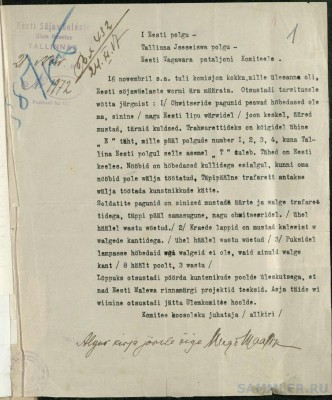 Eesti Sõjaväelaste
TALLINN
1972
1
I Eesti polgu -
Tallinna Jeeseiswa polgu -
Eesti Tagawara pataljoni Komiteele .
16 novembril s.a. tuli komisjon kokku,mille ülesanne oli,
Eesti sõjawäelaste wormi ära määrata. Otsustadi tarwitusele
wõtta järgmist : 1/ Ohwitseride pagunid peawad hõbedased ole
ma, sinine / nagu Eesti lipu wärwidel / joon keskel, ääred
mustad, tärnid kuldsed. Trahwarettideks on kõigidel ühine
" E " täht, mille pääl polgude number 1, 2, 3, 4, kuna Tal
lina Eesti polgul selle asemel " T " tuleb. Tähed on Eesti
keeles. Nööbid on hõbedased kullidega esialgul, kunni oma
nööbid pole wälja töötatud, Tüpipääline trafarett antakse
wälja töötada kunstnikkude kätte.
Soldatite pagunid on sinised mustade äärte ja walge trafaret
tidega, tüppi pääl samasugune, nagu ohwitseridel. / Uhel
häälel wastu wõetud./ 2/ Kraede lappid on mustad kalewist w
walgede kantidega. / Uhel häälel wastu wõetud / 3/ Puksidel
lampasse hõbedaid ega walgeid ei ole, waid ainult walge
kant / 8 häält poolt, 3 wastu /
Lõppuks otsustadi pöörda kuntnikude poolde üleskutsega, et
nad Eesti Malewa rinnamärgi projektid teeksid. Asja täide wi
wiimine otsustadi jätta Ülemkomitee hoolde.
Komitee koosoleku juhataja / allkiri /
Algus kirja järele õige
SAMMLER.RU